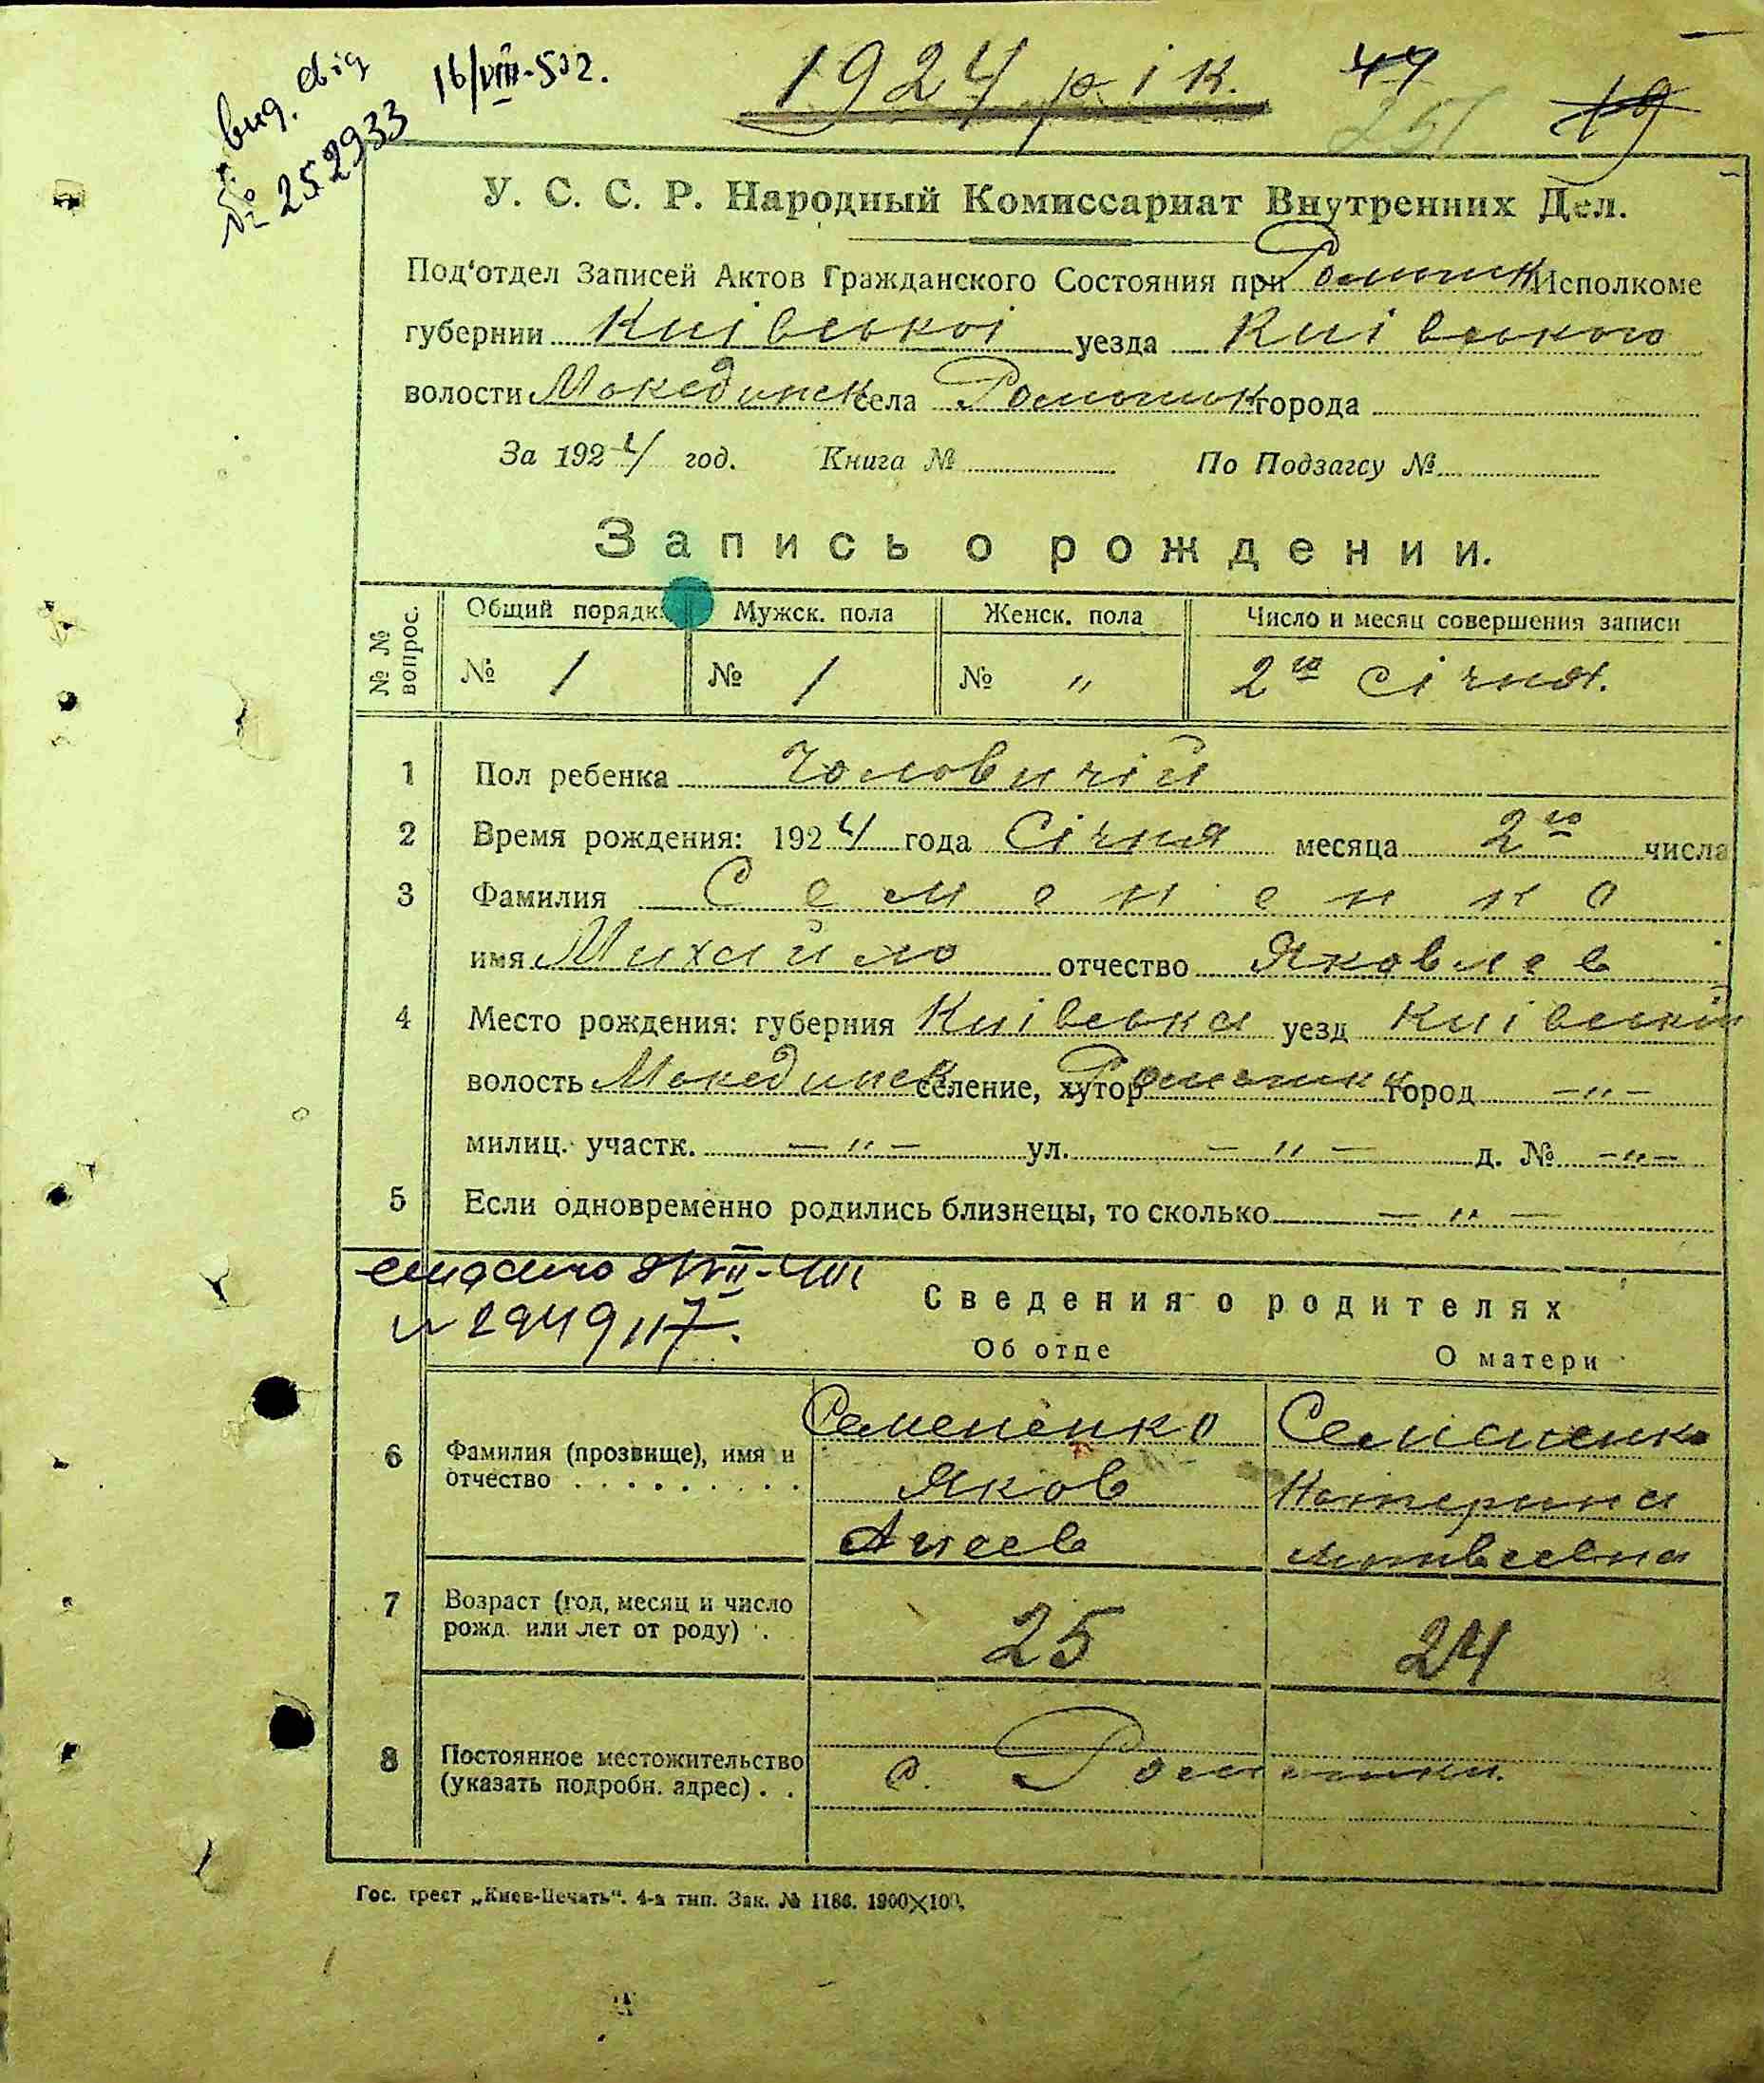 вид. свід
№ 252933
16/VIII-52г.
1924 рік.
44
251
19
У. С. С. Р. Народный Комиссариат Внутренних Дел.
Под'отдел Записей Актов Гражданского Состояния при Ромашк Исполкоме
губернии Киівськоі уезда Киівського
волости Македонск села Ромашки города
За 1924 год. Книга № По Подзагсу №
Запись о рождении.
№ № вопрос. Общий порядк. Мужск. пола Женск. пола Число и месяц совершения записи
№ 1 № 1 № " 2го Січня.
1 Пол ребенка Чоловичій
2 Время рождения: 1924 года Січня месяца 2го числа
3 Фамилия Семененко
имя Михайло отчество Яковлев
4 Место рождения: губерния Киівська уезд Киівський
волость Македонск селение, хутор Ромашки город -"-
милиц. участк. -"- ул. -"- д. № -"-
5 Если одновременно родились близнецы, то сколько -"-
Сведения о родителях
2949117.
Об отце О матери
6 Фамилия (прозвище), имя и отчество . . . . . . . . .
Семененко Семененко
Яков Катерина
Матвеевна
7 Возраст (год, месяц и число рожд. или лет от роду) . 25 24
8 Постоянное местожительство (указать подробн. адрес) . . с. Ромашки.
Гос. трест „Киев-Печать". 4-я тип. Зак. № 1186. 1900×100.